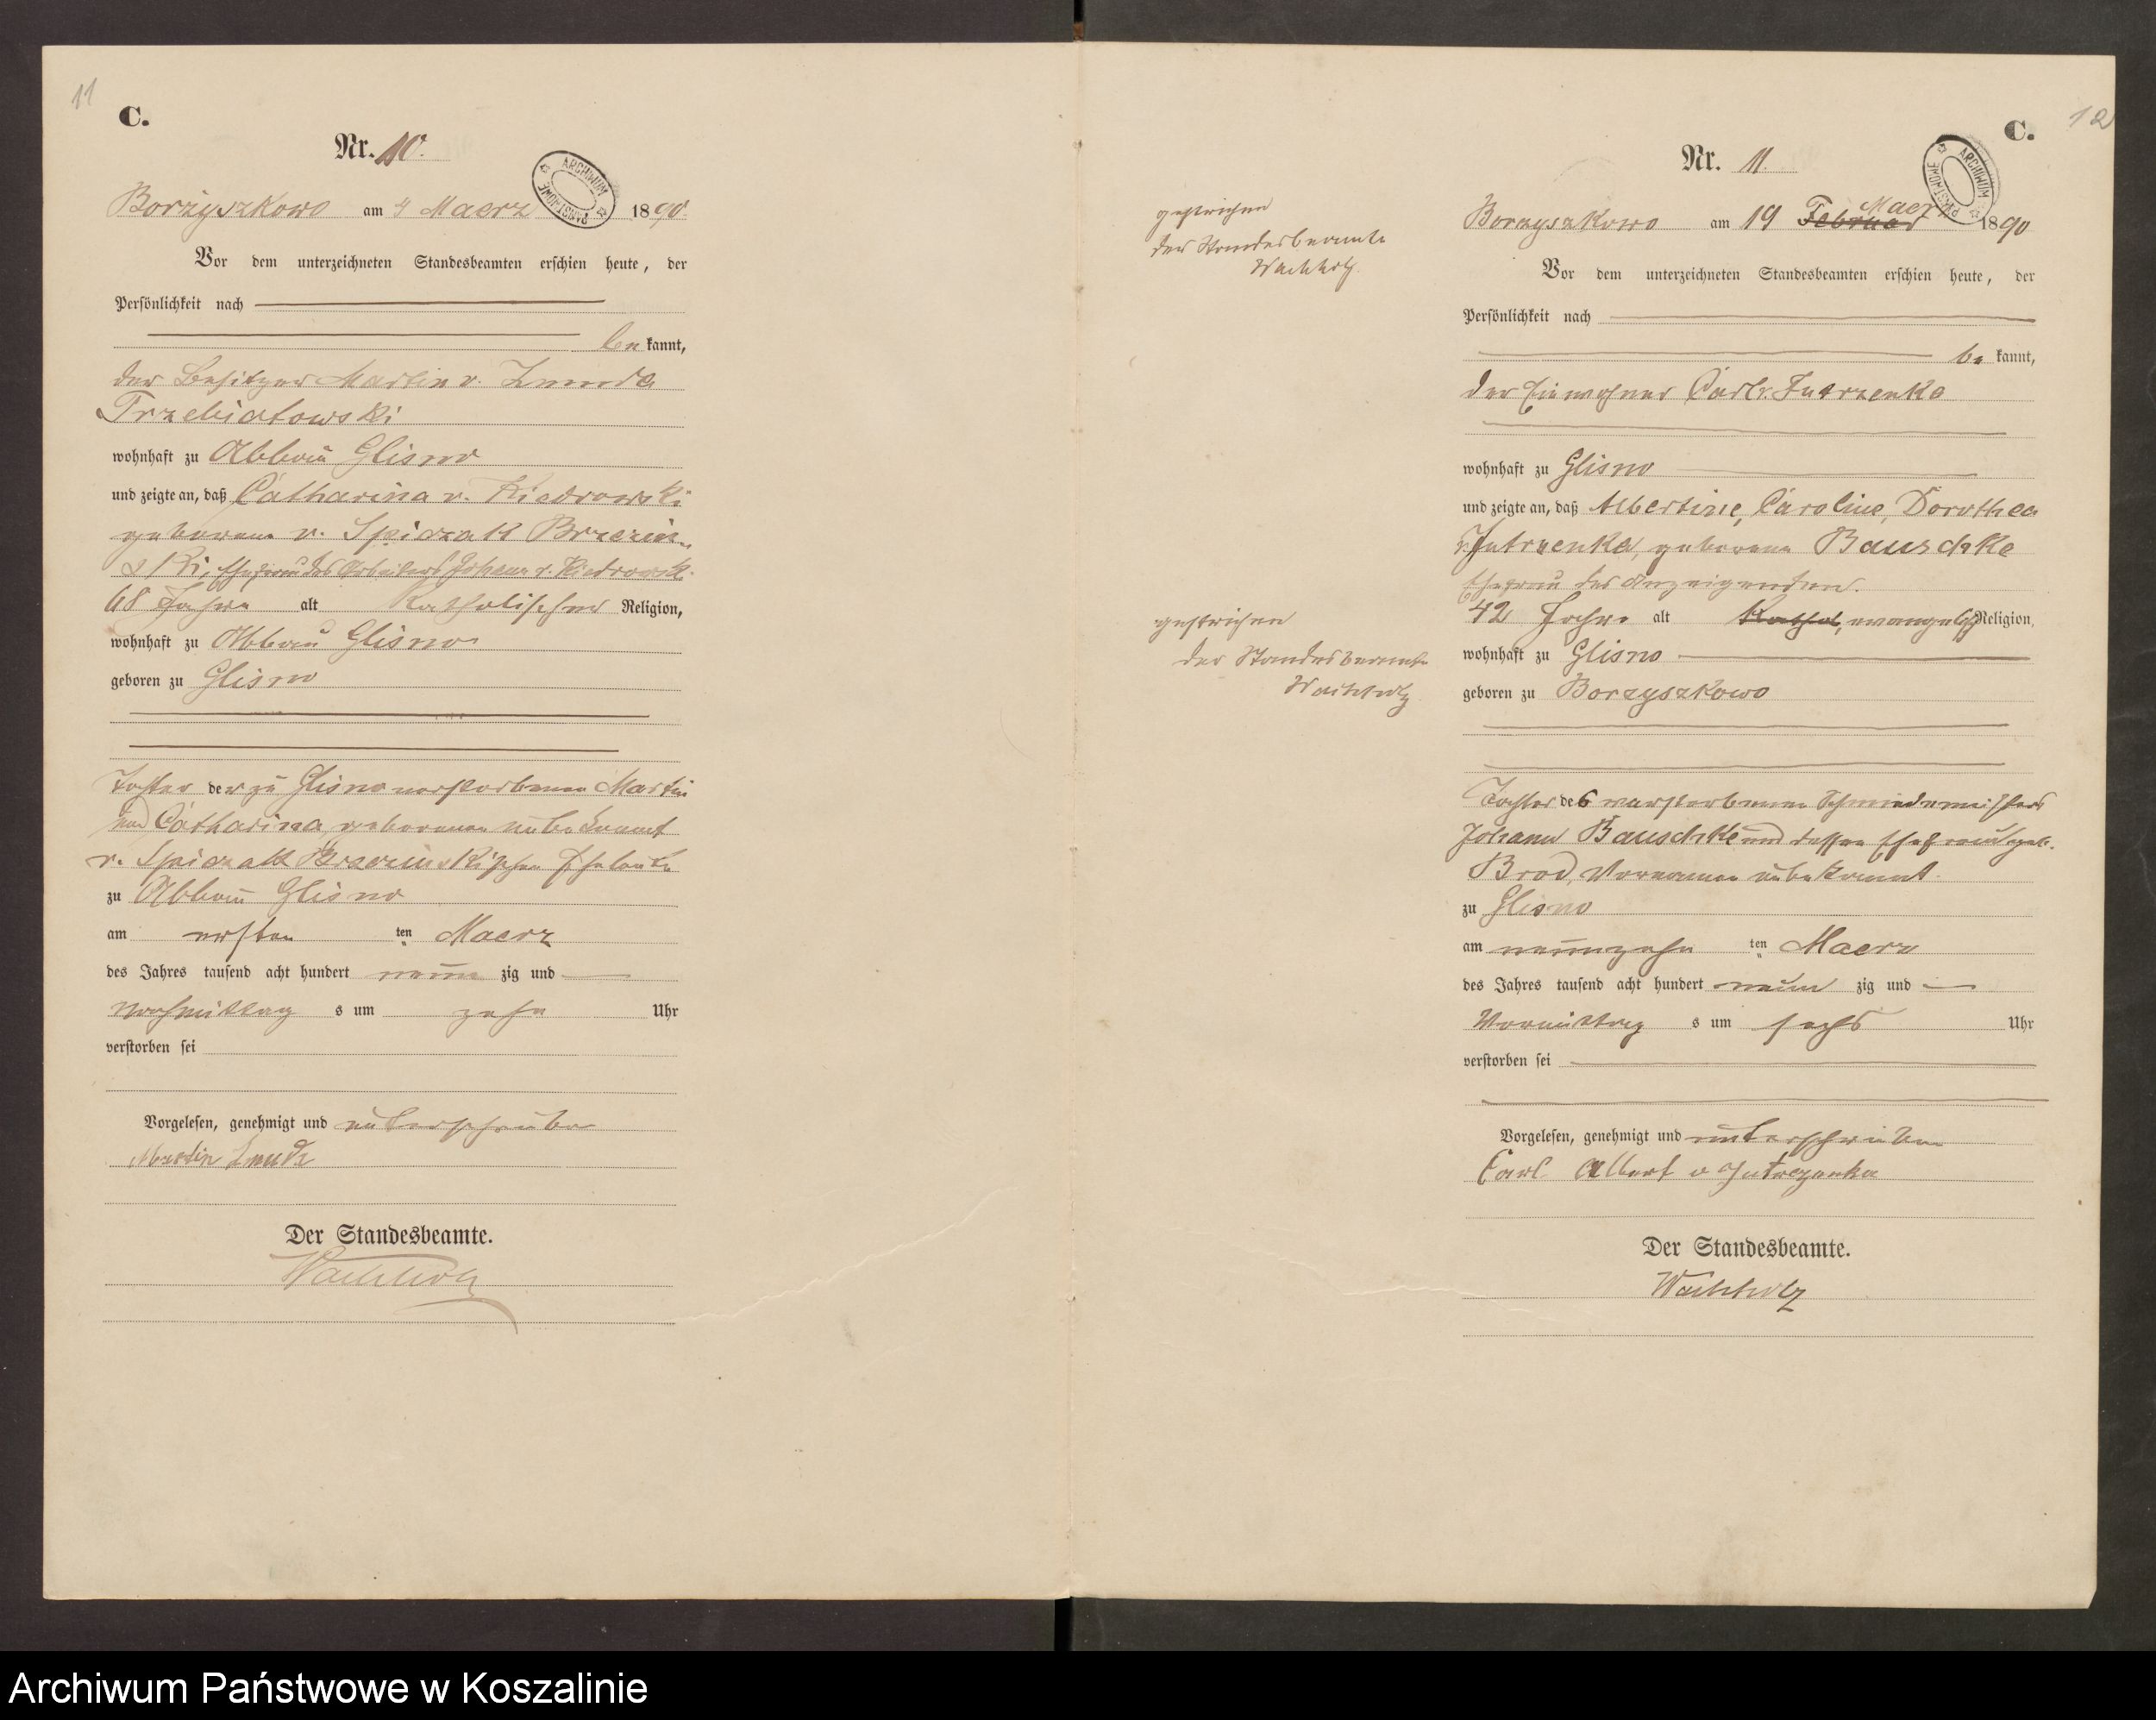 11
C.
Nr. 10.
ARCHIWUM PAŃSTWOWE
Borzyszkowo am 4 Maerz 1890.
Vor dem unterzeichneten Standesbeamten erschien heute, der
Persönlichkeit nach
be kannt,
der Besitzer Martin v. Zmuda
Trzebiatowski
wohnhaft zu Abbau Glisno
und zeigte an, daß Catharina v. Kiedrowski
geborene v. Spiczak Brzezin-
ski, Ehefrau des Arbeiters Johann v. Kiedrowski
68 Jahre alt Katholischer Religion,
wohnhaft zu Abbau Glisno
geboren zu Glisno
Tochter der zu Glisno verstorbenen Martin
und Catharina geborenen unbekannt
v. Spiczak Brzezinskischen Eheleute
zu Abbau Glisno
am ersten ten Maerz
des Jahres tausend acht hundert neun zig und
Nachmittag s um zehn Uhr
verstorben sei
Vorgelesen, genehmigt und unterschrieben
Martin Zmuda
Der Standesbeamte.
Wachholz
12
C.
Nr. 11
ARCHIWUM PAŃSTWOWE
gestrichen
der Standesbeamte
Wachholz
Maerz
Borzyszkowo am 19 Februar 1890
Vor dem unterzeichneten Standesbeamten erschien heute, der
Persönlichkeit nach
be kannt,
der Einwohner Carl v. Jutrzenka
wohnhaft zu Glisno
und zeigte an, daß Albertine, Caroline, Dorothea
v. Jutrzenka, geborene Bauschke
Ehefrau des Anzeigenden.
gestrichen
der Standesbeamte
Wachholz
42 Jahre alt Kathol, evangelisch Religion,
wohnhaft zu Glisno
geboren zu Borzyszkowo
Tochter des verstorbenen Schmiedemeisters
Johann Bauschke und dessen Ehefrau geb.
Brod, Vornamen unbekannt.
zu Glisno
am neunzehn ten Maerz
des Jahres tausend acht hundert neun zig und
Vormittag s um sechs Uhr
verstorben sei
Vorgelesen, genehmigt und unterschrieben
Carl Albert v Jutrczenka
Der Standesbeamte.
Wachholz
Archiwum Państwowe w Koszalinie